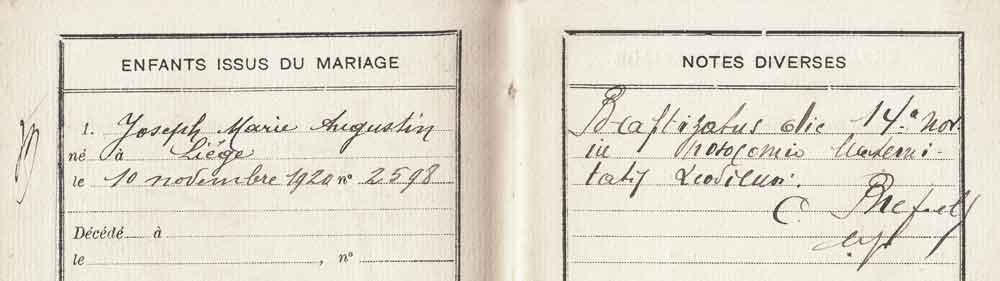 ENFANTS ISSUS DU MARIAGE
1. Joseph Marie Augustin
né à Liége
le 10 novembre 1920 n° 2598
Décédé à
le , n°
NOTES DIVERSES
Baptizatus die 14.a Nov.
in nosocomio Materni-
tatis Leodiensi.
C.